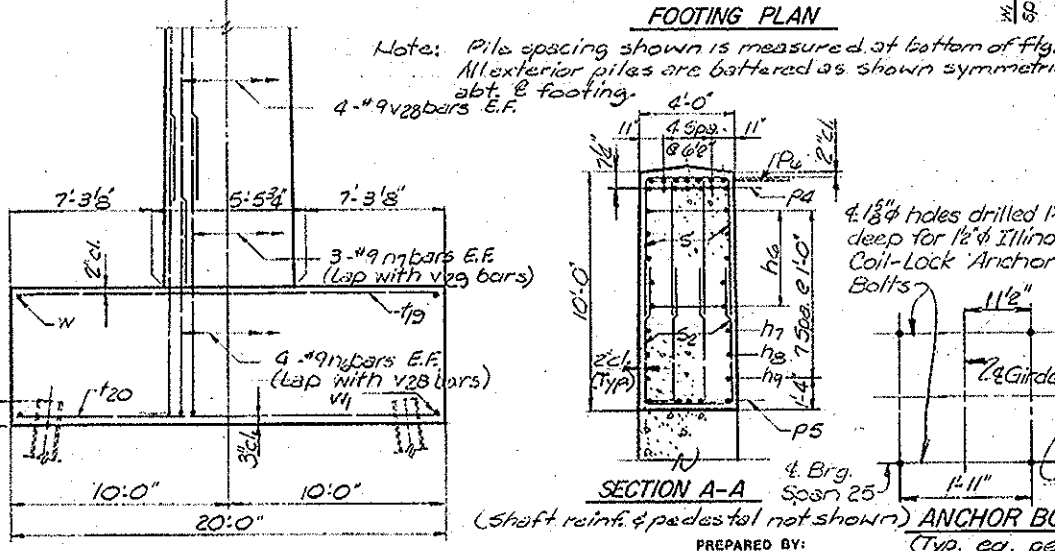 FOOTING PLAN
Note: Pile spacing shown is measured at bottom of Ftg.
All exterior piles are battered as shown symmetri
abt. ℄ footing.
4-#9 v28 bars E.F.
7'-3⅛"
5'-5¾"
7'-3⅛"
3-#9 n7 bars E.F.
(Lap with v29 bars)
2"cl.
w
t19
4-#9 n6 bars E.F.
(Lap with v28 bars)
t20
w1
3"cl.
10'-0"
10'-0"
20'-0"
4'-0"
11"
4 Spa.
11"
2"cl.
P4
10'-0"
h6
1'-4"
7 Spa. @ 1'-0"
S2
h7
h8
h9
2"cl.
(Typ)
P5
SECTION A-A
(Shaft reinf. & pedestal not shown)
PREPARED BY:
holes drilled
deep for 1½"φ Illino
Coil-Lock Anchor
Bolts
11½"
℄ Girde
℄ Brg.
Span 25
1'-11"
ANCHOR BO
(Typ. ea. pe